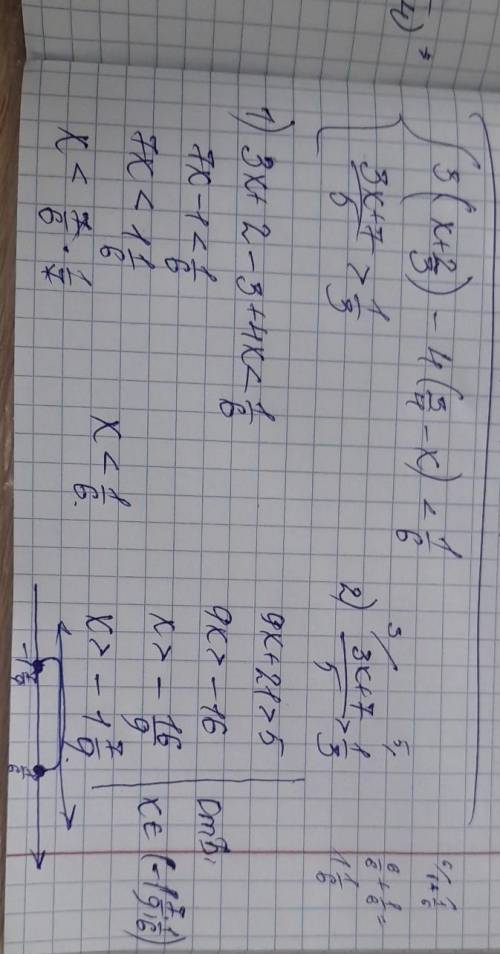 4) *
{ 3(x+2/3) - 4(3/4 - x) < 1/6
3x+7/6 > 1/3
1) 3x+2-3+4x < 1/6
7x-1 < 1/6
7x < 1 1/6
x < 7/6 · 1/7
x < 1/6.
2) 3/ 3x+7/5 > 1/3 5,
9x+21 > 5
9x > -16
x > - 16/9
x > - 1 7/9.
-1 7/9 1/6
Отв:
x ∈ (-1 7/9; 1/6)
6/6 + 1/6 =
1 1/6